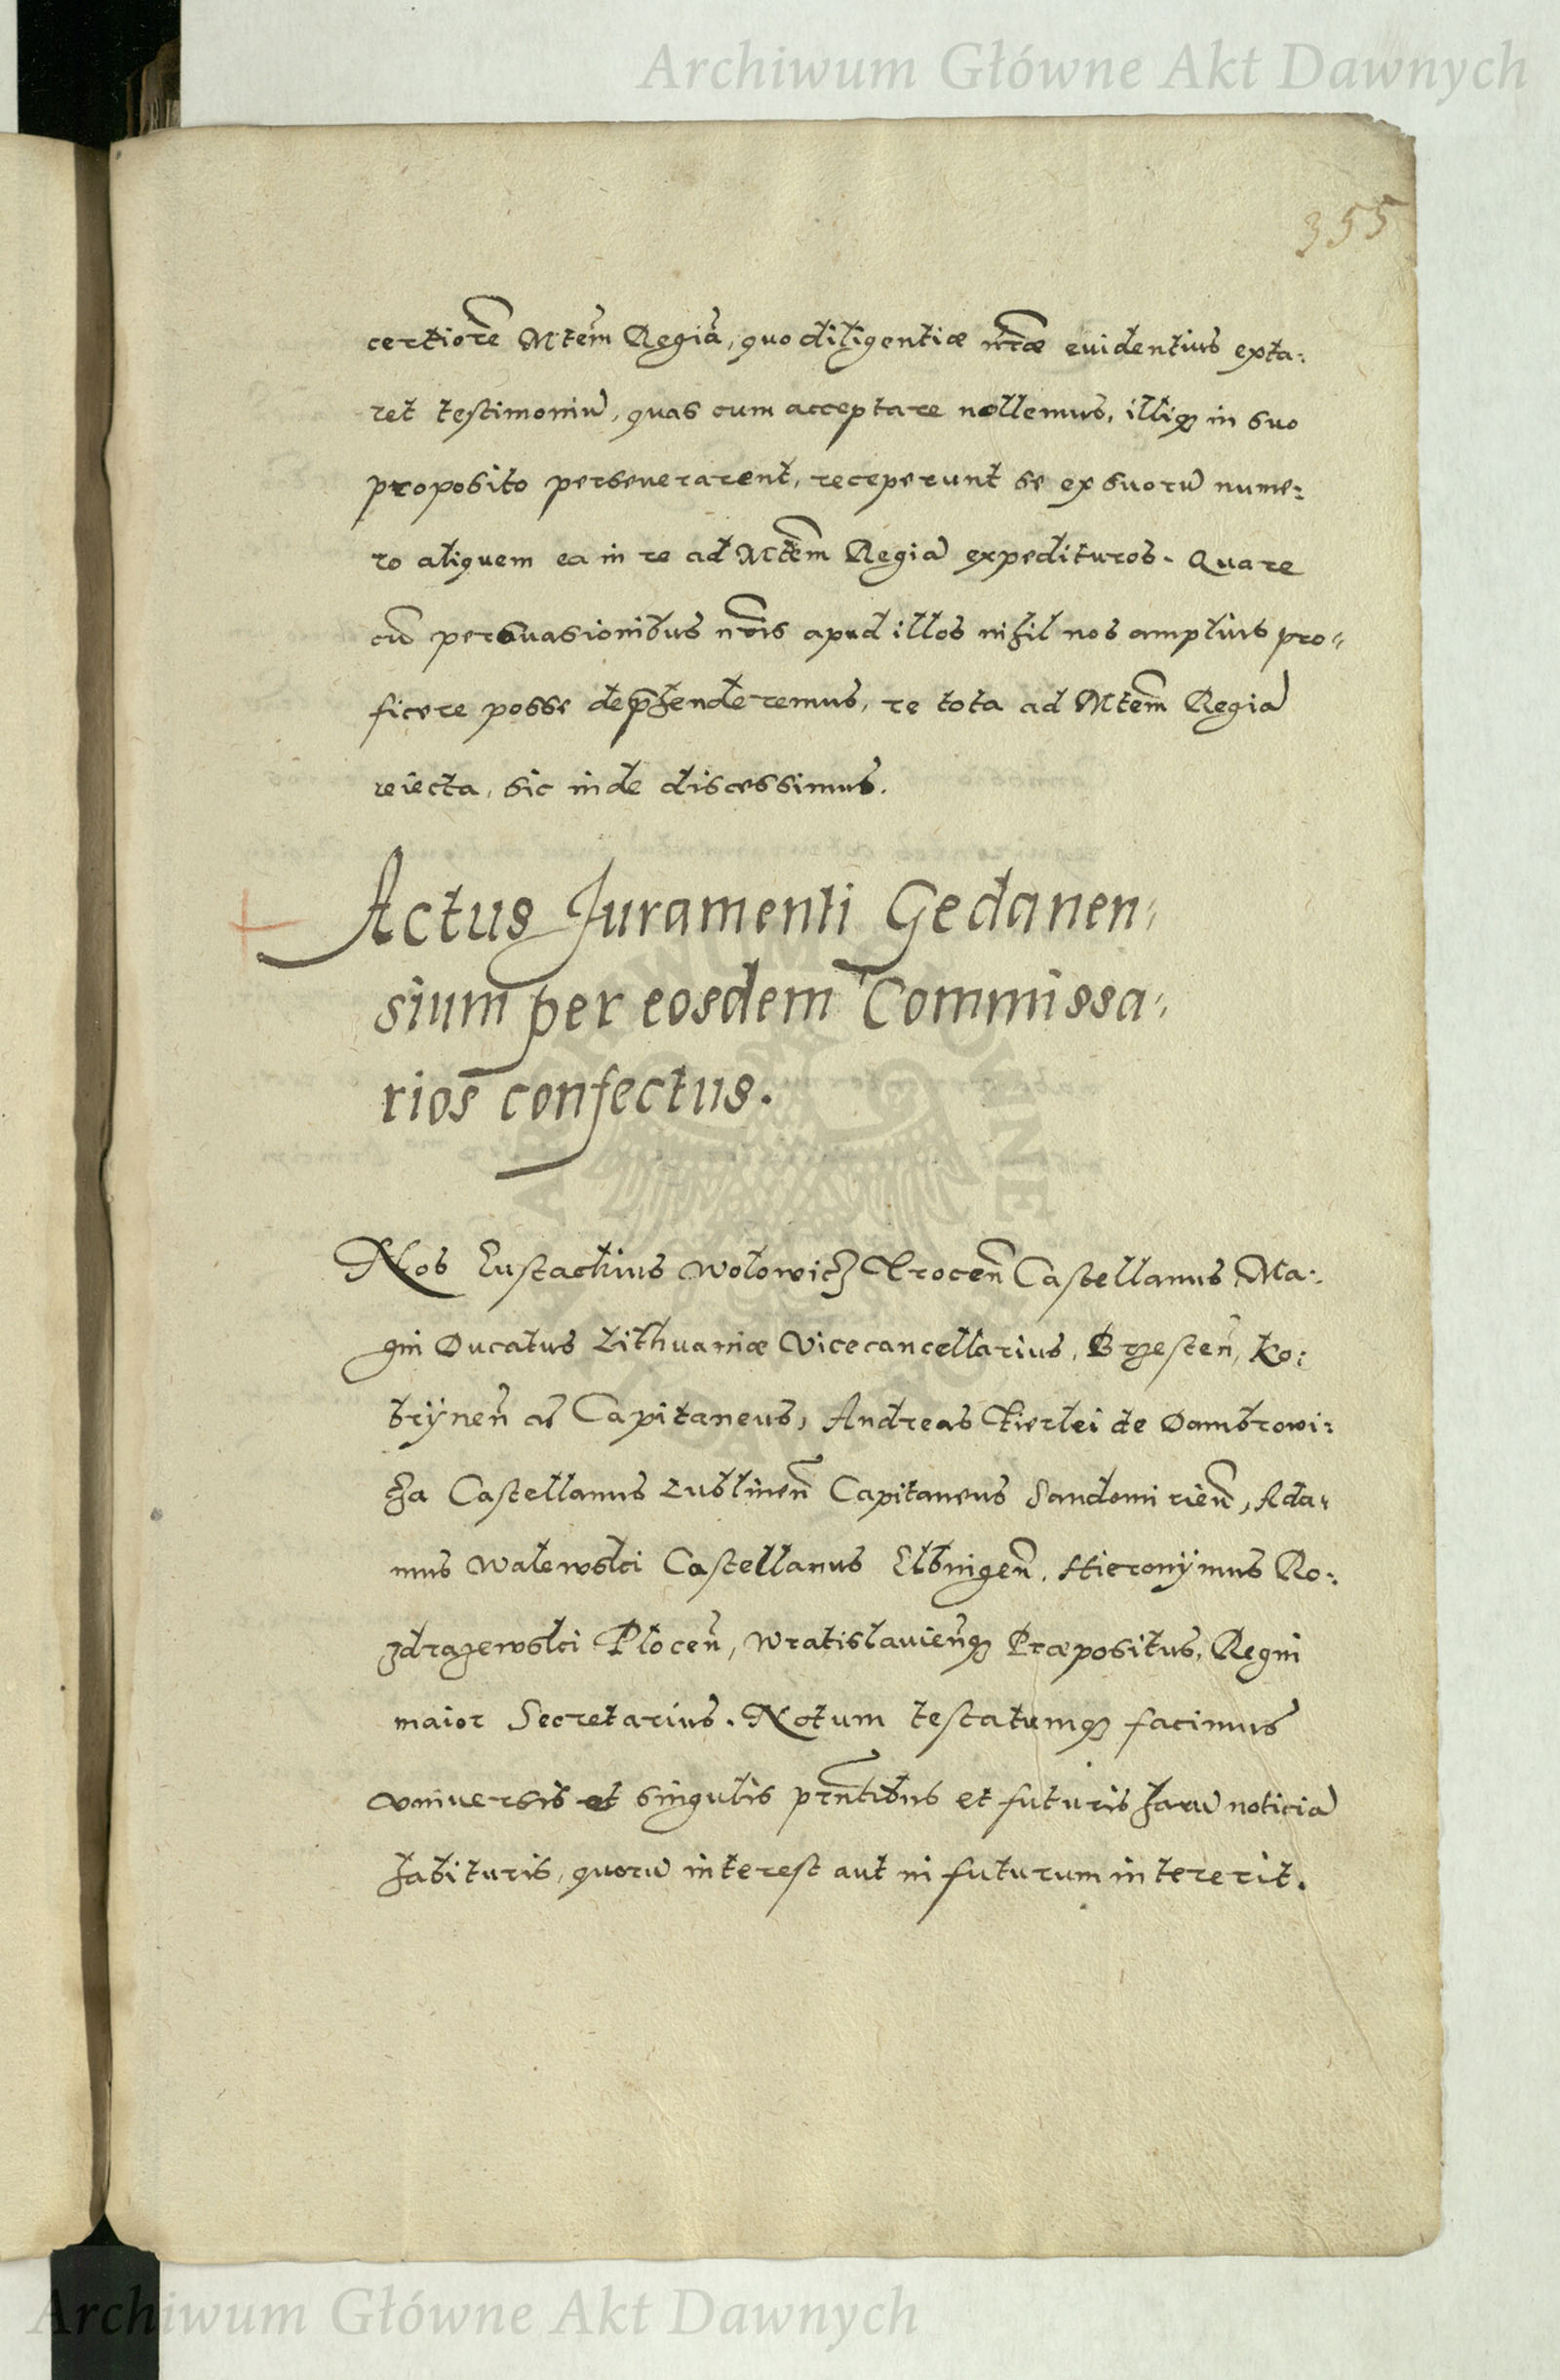 Archiwum Główne Akt Dawnych
355
certiorē Mtem̄ Regiā, quo diligentiæ nr̄æ euidentius exta:
ret testimoniū, quas cum acceptare nollemus, illiqꝫ in suo
proposito perseuerarent, receperunt se ex suorū nume:
ro aliquem ea in re ad Mtem̄ Regiā expedituros. Quare
cū persuasionibus nr̄is apud illos nihil nos amplius pro=
ficere posse dep̄henderemus, re tota ad Mtem̄ Regiā
reiecta, sic inde discessimus.
Actus Juramenti Gedanen=
sium per eosdem Commissa=
rios confectus.
Nos Eustachius Wołowicz Trocen̄ Castellanus Ma:
gni Ducatus Lithuaniæ Vicecancellarius, Brzesten̄, Ko:
brÿnen̄ Capitaneus, Andreas Fierlei de Dambrowi:
cza Castellanus Lublinen̄ Capitaneus Sandomirien̄, Ada=
mus Walewski Castellanus Elbingen̄, Hieronÿmus Ro:
zdrazewski Płocen̄, Wratislauien̄qꝫ Præpositus, Regni
maior Secretarius. Notum testatumqꝫ facimus
vniuersis et singulis pr̄ntibus et futuris harū noticiā
habituris, quorū interest aut in futurum intererit.
Archiwum Główne Akt Dawnych